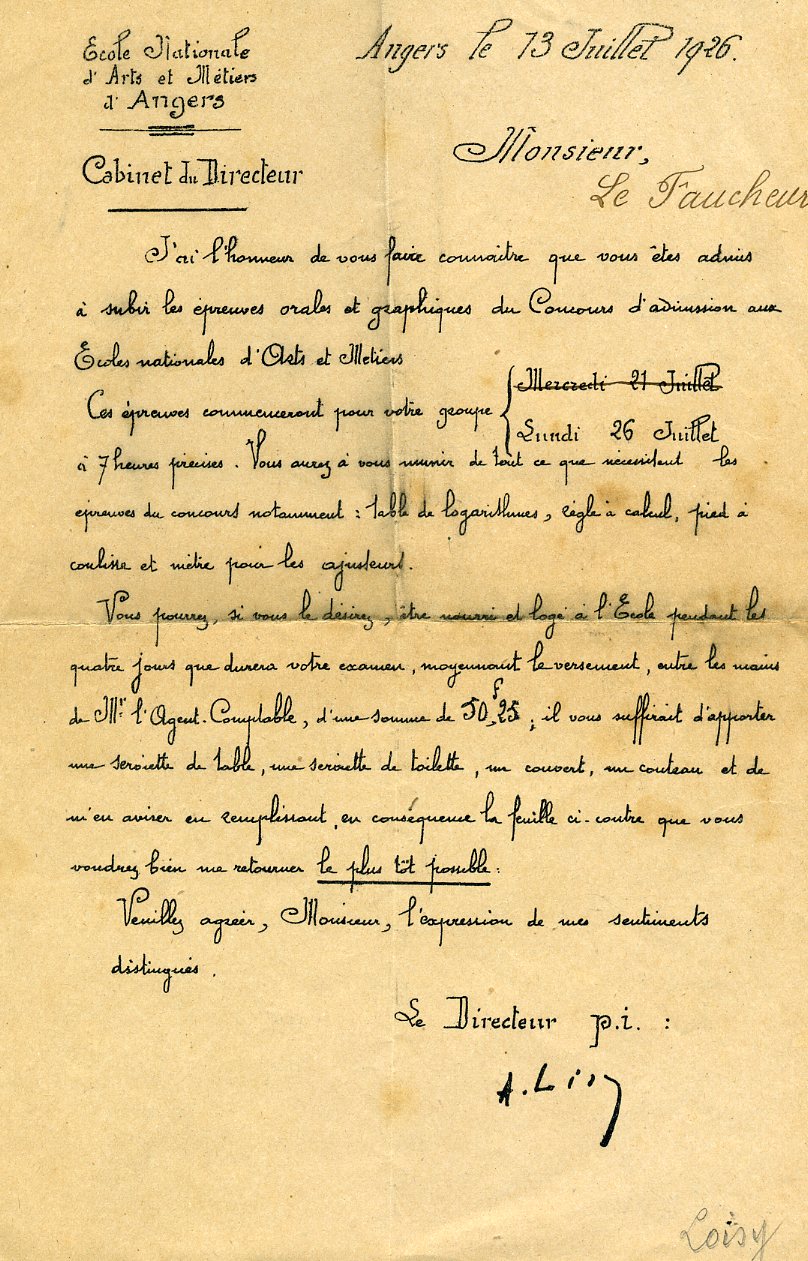 Ecole Nationale
d'Arts et Métiers
d'Angers
Angers le 13 Juillet 1926.
Cabinet du Directeur
Monsieur,
Le Faucheur
J'ai l'honneur de vous faire connaître que vous êtes admis
à subir les épreuves orales et graphiques du Concours d'admission aux
Ecoles nationales d'Arts et Metiers
Mercredi 21 Juillet
Ces épreuves commenceront pour votre groupe
Lundi 26 Juillet
à 7 heures précises. Vous aurez à vous munir de tout ce que nécessitent les
épreuves du concours notamment : table de logarithmes, règle à calcul, pied à
coulisse et mètre pour les ajusteurs.
Vous pourrez, si vous le désirez, être nourri et logé à l'Ecole pendant les
quatre jours que durera votre examen, moyennant le versement, entre les mains
de Mr. l'Agent-Comptable, d'une somme de 50f,25 ; il vous suffirait d'apporter
une serviette de table, une serviette de toilette, un couvert, un couteau et de
m'en aviser en remplissant, en conséquence la feuille ci-contre que vous
voudrez bien me retourner le plus tôt possible.
Veuillez agréer, Monsieur, l'expression de mes sentiments
distingués.
Le Directeur p.i. :
Loisy